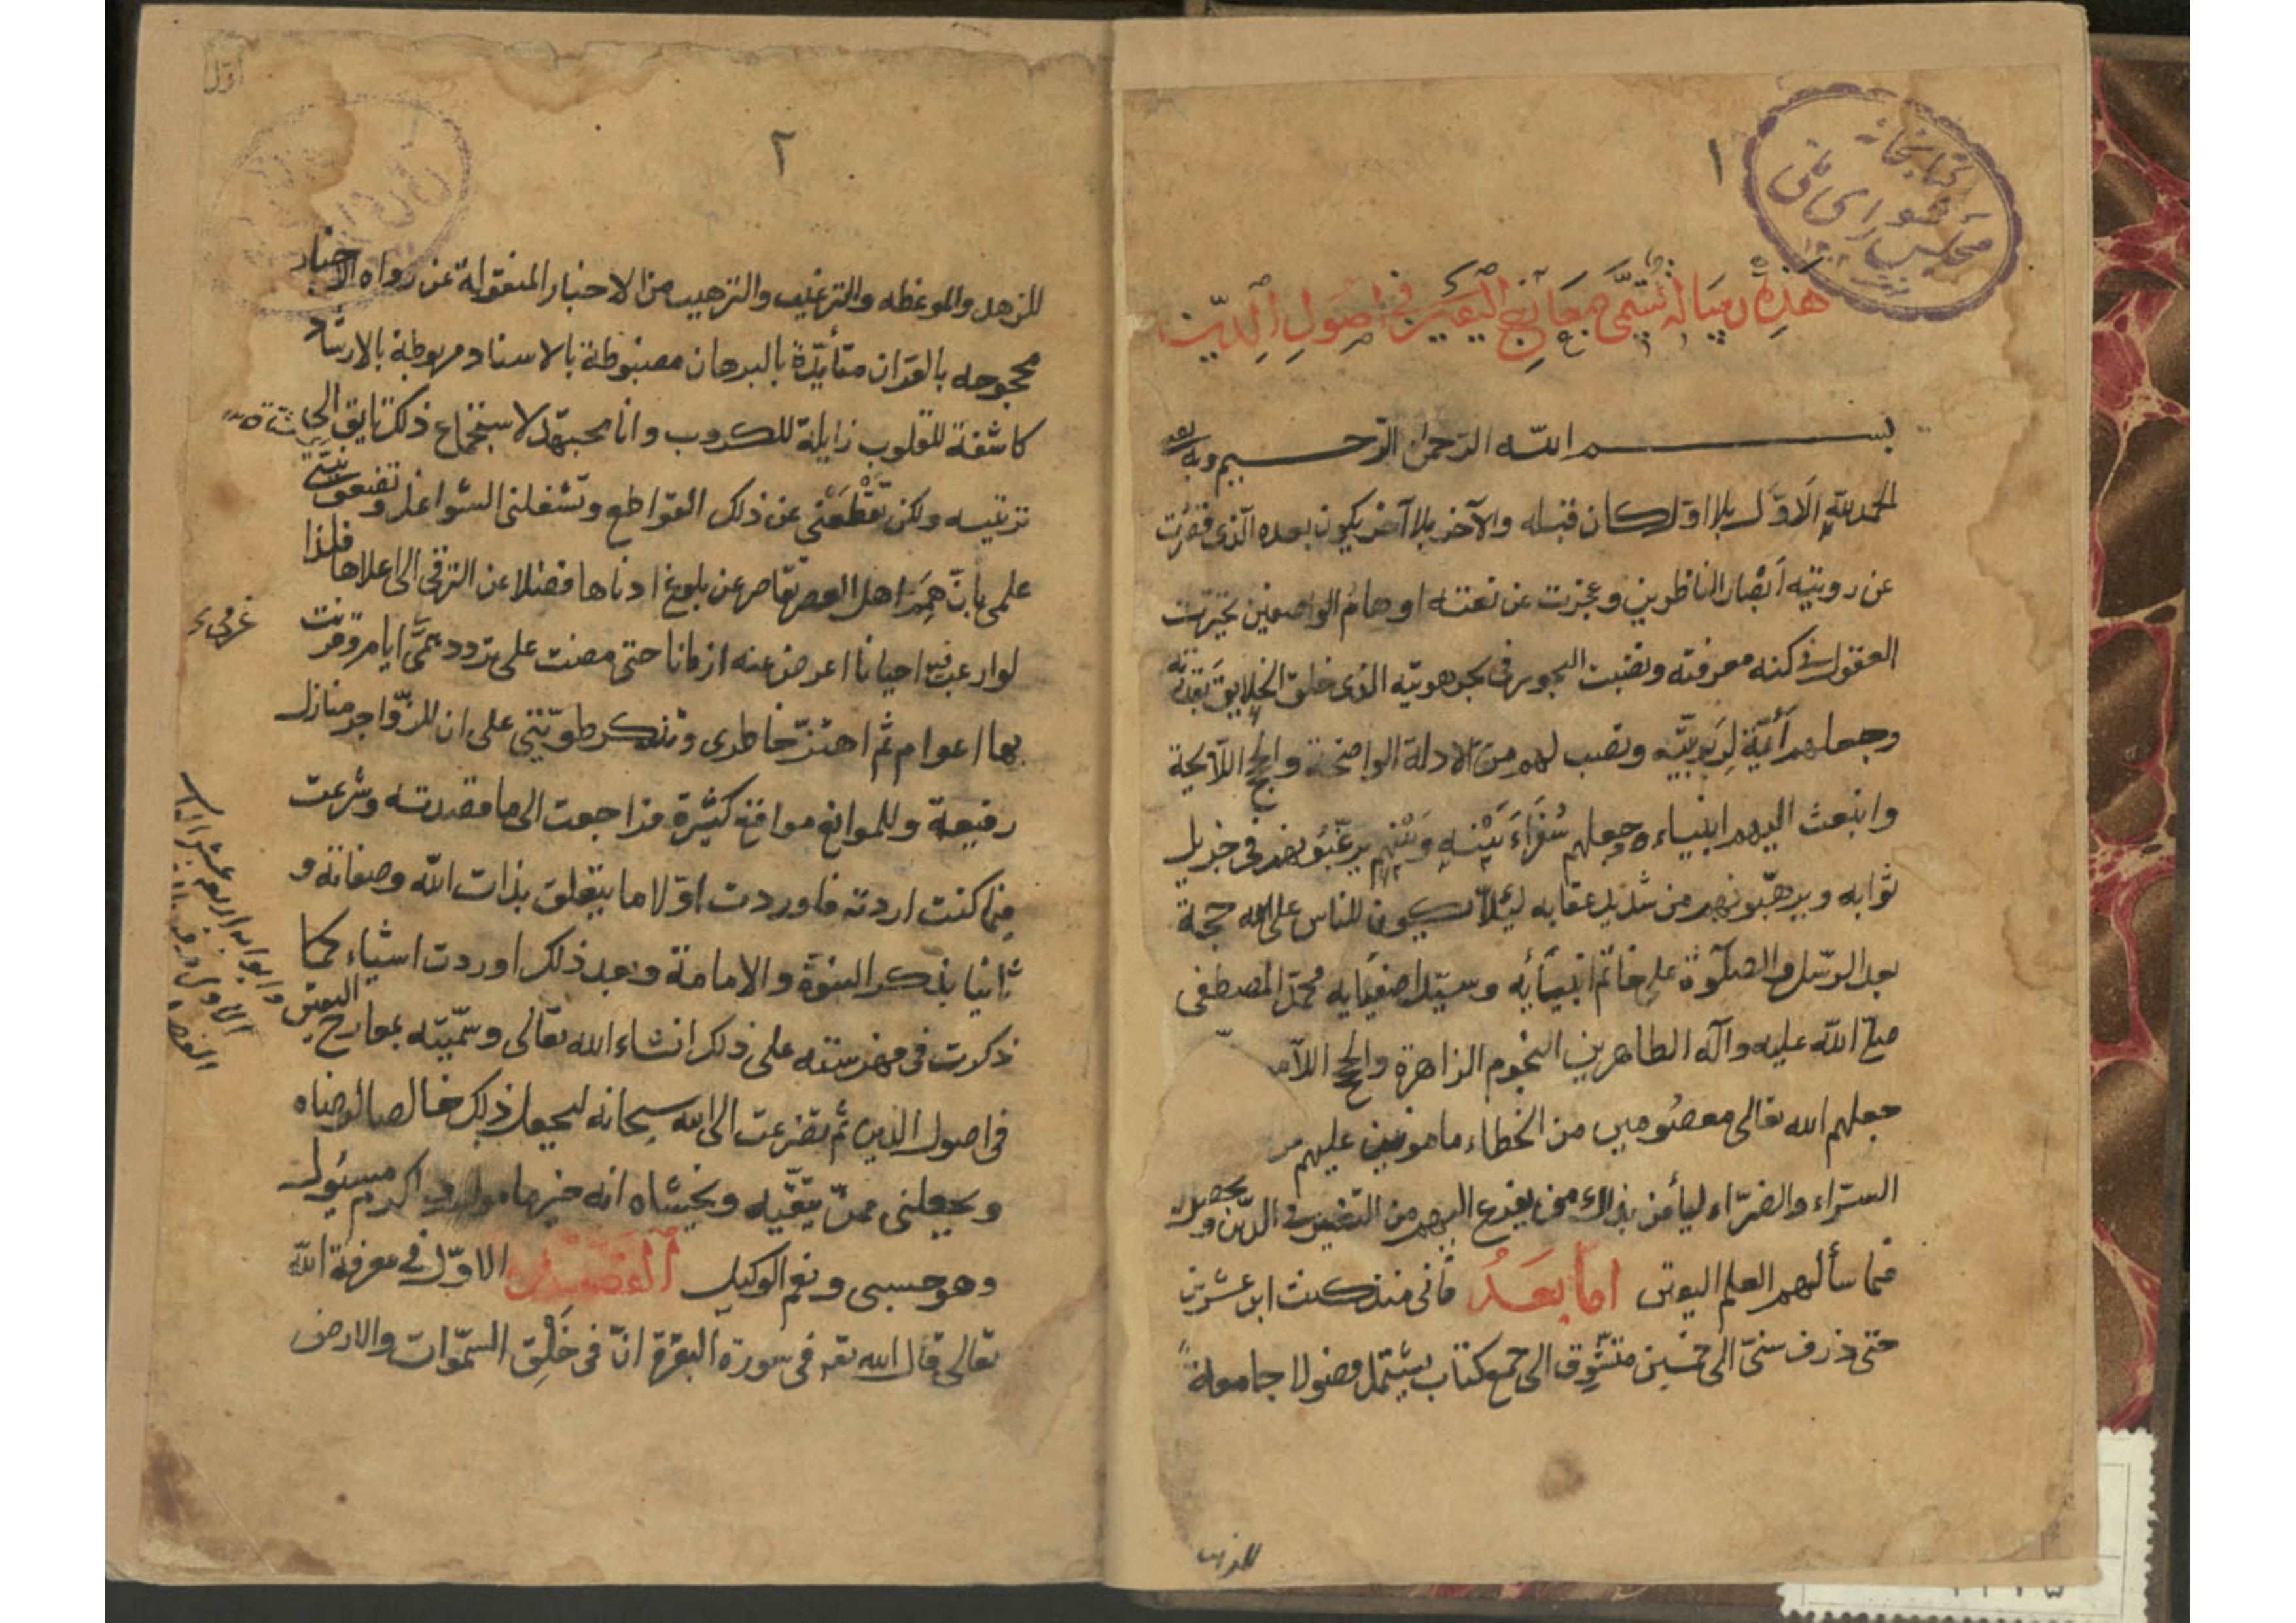 کتابخانه
مجلس شورای ملی
١
هَذِهِ رسالة تُسَمَّى مَعَارِجُ الْيَقِينِ فِي اُصُولِ الدِّينِ
بسم الله الرحمن الرحيم وبه
الحمد لله الاَوَّلِ بلا اول كان قبله والآخر بلا آخر يكون بعده الّذى قصُرَت
عن رويته اَبْصَار الناظرين وعجزت عن نعته اوهامُ الواصفين تحيّرت
العقول فى كنه معرفته ونضبت البحور فى بحر هويته الذى خلق الخلايق بقدرته
وجعلهم آية لِرَبوبيّته ونصب لهم من الادلة الواضحة والحجج اللّايحة
وابتعث اليهم انبياءه وجعلهم سُفَرَاءَ بَيْنَه وَبَيْنهم يرغّبُونهم فى جزيل
ثوابه ويرهّبونهم من شديد عقابه لِئَلّا يكون للناس على الله حجة
بعد الرّسل والصلوة على خاتم انبيائِه وسيّد اصفيايه محمّد المصطفى
صلى الله عليه وآله الطاهرين النجوم الزاهرة والحجج اللّا
جعلهم الله تعالى معصُومين من الخطاء مامونين عليهم
السرّاء والضرّاء ليأمن بذلك من يفزع اليهم من التغيير فى الدّين ويحصل
فيما سألهم العلم اليقين امّا بَعدُ فانى منذ كنت ابن عشرين
حتى ذرف سنىّ الى خمسين متشوّق الى جمع كتاب يشتمل فصولا جامعة
للزهد
اول
٢
للزهد والموعظه والترغيب والترهيب من الاخبار المنقولة عن رواه الاخبار
محجوجه بالقران متأيّدةً بالبرهان مضبوطة بالاسناد مربوطة بالارشاد
كاشفة للقلوب زايلة للكروب وانا مجتهد لاستجماع ذلك تايق الى
ترتيبه ولكن تَقْطَعُنى عن ذلك القواطع وتشغلنى الشواغل وتضعف نيتى
علمى بانّ هِمَم اهل العصر تقاصر عن بلوغ ادناها فضلا عن الترقى الى اعلاها فلذا
لوارغب فيه احيانا اعرض عنه ازمانا حتى مضت على تردد عزمى ايام وقرنت
بها اعوام ثم اهتزّ خاطرى وتذكر طويّتى على ان للزّواجر منازل
رفيعة وللموانع مواقع كثيرة فراجعت الى ما قصدته وشرعت
فيما كنت اردته فاوردت اوّلا ما يتعلق بذات الله وصفاته و
ثانيا بذكر النبوّة والامامة وبعد ذلك اوردت اشياء كما
ذكرت فى فهرسته على ذلك انشاء الله تعالى وسمّيته بمعارج اليقين
فى اصول الدين ثم تضرعت الى الله سبحانه ليجعل ذلك خالصا لرضاه
ويجعلنى ممّن يتّقيه ويخشاه انه خير مامول واكرم مسئول
وهو حسبى ونعم الوكيل اَلفَصْلُ الاوّل فى معرفة الله
تعالى قال الله تعه فى سورة البقرة انّ فى خَلْقِ السمّوات والارض
عزمى